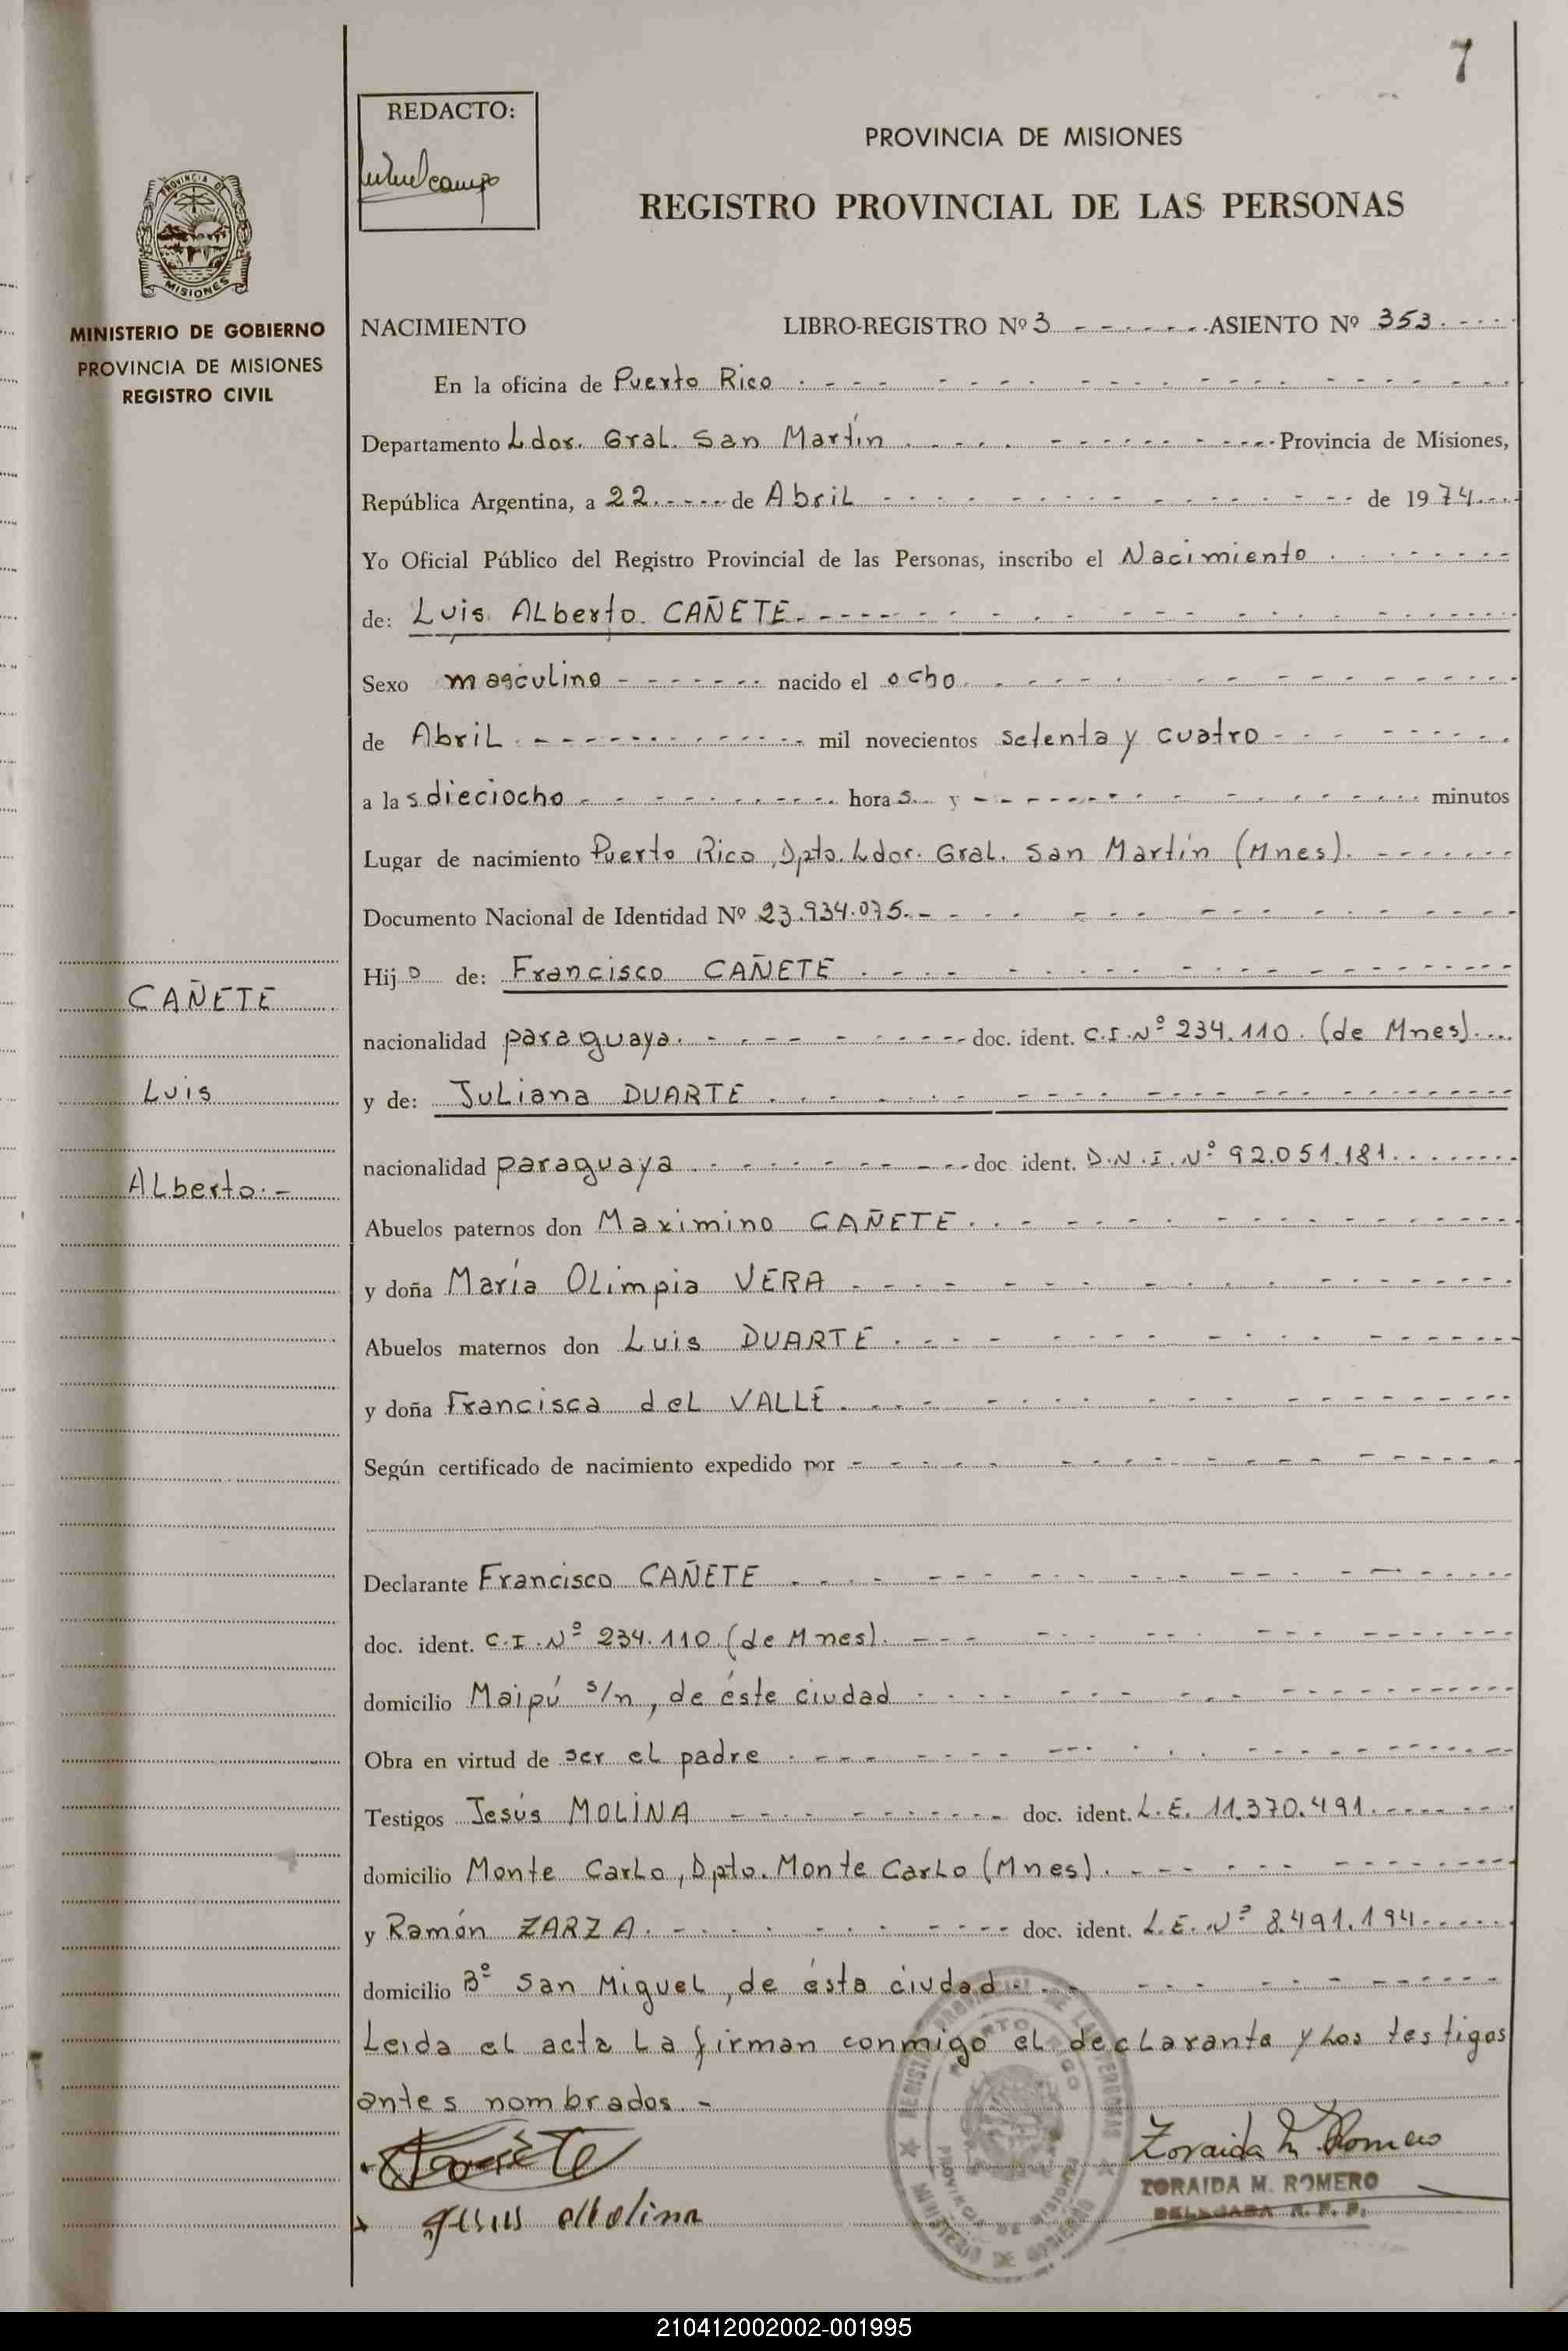 7
REDACTO:
PROVINCIA DE MISIONES
REGISTRO PROVINCIAL DE LAS PERSONAS
PROVINCIA DE
MISIONES
MINISTERIO DE GOBIERNO
PROVINCIA DE MISIONES
REGISTRO CIVIL
NACIMIENTO LIBRO-REGISTRO Nº 3 ASIENTO Nº 353.
En la oficina de Puerto Rico
Departamento Ldor. Gral. San Martín Provincia de Misiones,
República Argentina, a 22 de Abril de 1974
Yo Oficial Público del Registro Provincial de las Personas, inscribo el Nacimiento
de: Luis Alberto CAÑETE
Sexo masculino nacido el ocho
de Abril mil novecientos setenta y cuatro
a las dieciocho horas y minutos
Lugar de nacimiento Puerto Rico, Dpto. Ldor. Gral. San Martín (Mnes).
Documento Nacional de Identidad Nº 23.934.075.
Hijo de: Francisco CAÑETE
nacionalidad paraguaya. doc. ident. C.I. Nº 234.110. (de Mnes)
y de: Juliana DUARTE
nacionalidad paraguaya doc. ident. D.N.I. Nº 92.051.181
Abuelos paternos don Maximino CAÑETE
y doña María Olimpia VERA
Abuelos maternos don Luis DUARTE
y doña Francisca del VALLE
Según certificado de nacimiento expedido por
Declarante Francisco CAÑETE
doc. ident. C.I. Nº 234.110 (de Mnes).
domicilio Maipú s/n, de éste ciudad
Obra en virtud de ser el padre
Testigos Jesús MOLINA doc. ident. L.E. 11.370.491
domicilio Monte Carlo, Dpto. Monte Carlo (Mnes).
y Ramón ZARZA. doc. ident. L.E. Nº 8.491.194
domicilio Bº San Miguel, de ésta ciudad
Leida el acta la firman conmigo el declarante y los testigos
antes nombrados.-
CAÑETE
Luis
Alberto:-
Cañete
Jesus Molina
Zoraida M. Romero
ZORAIDA M. ROMERO
DELEGADA R. P. P.
MINISTERIO DE GOBIERNO
PROVINCIA DE MISIONES
210412002002-001995